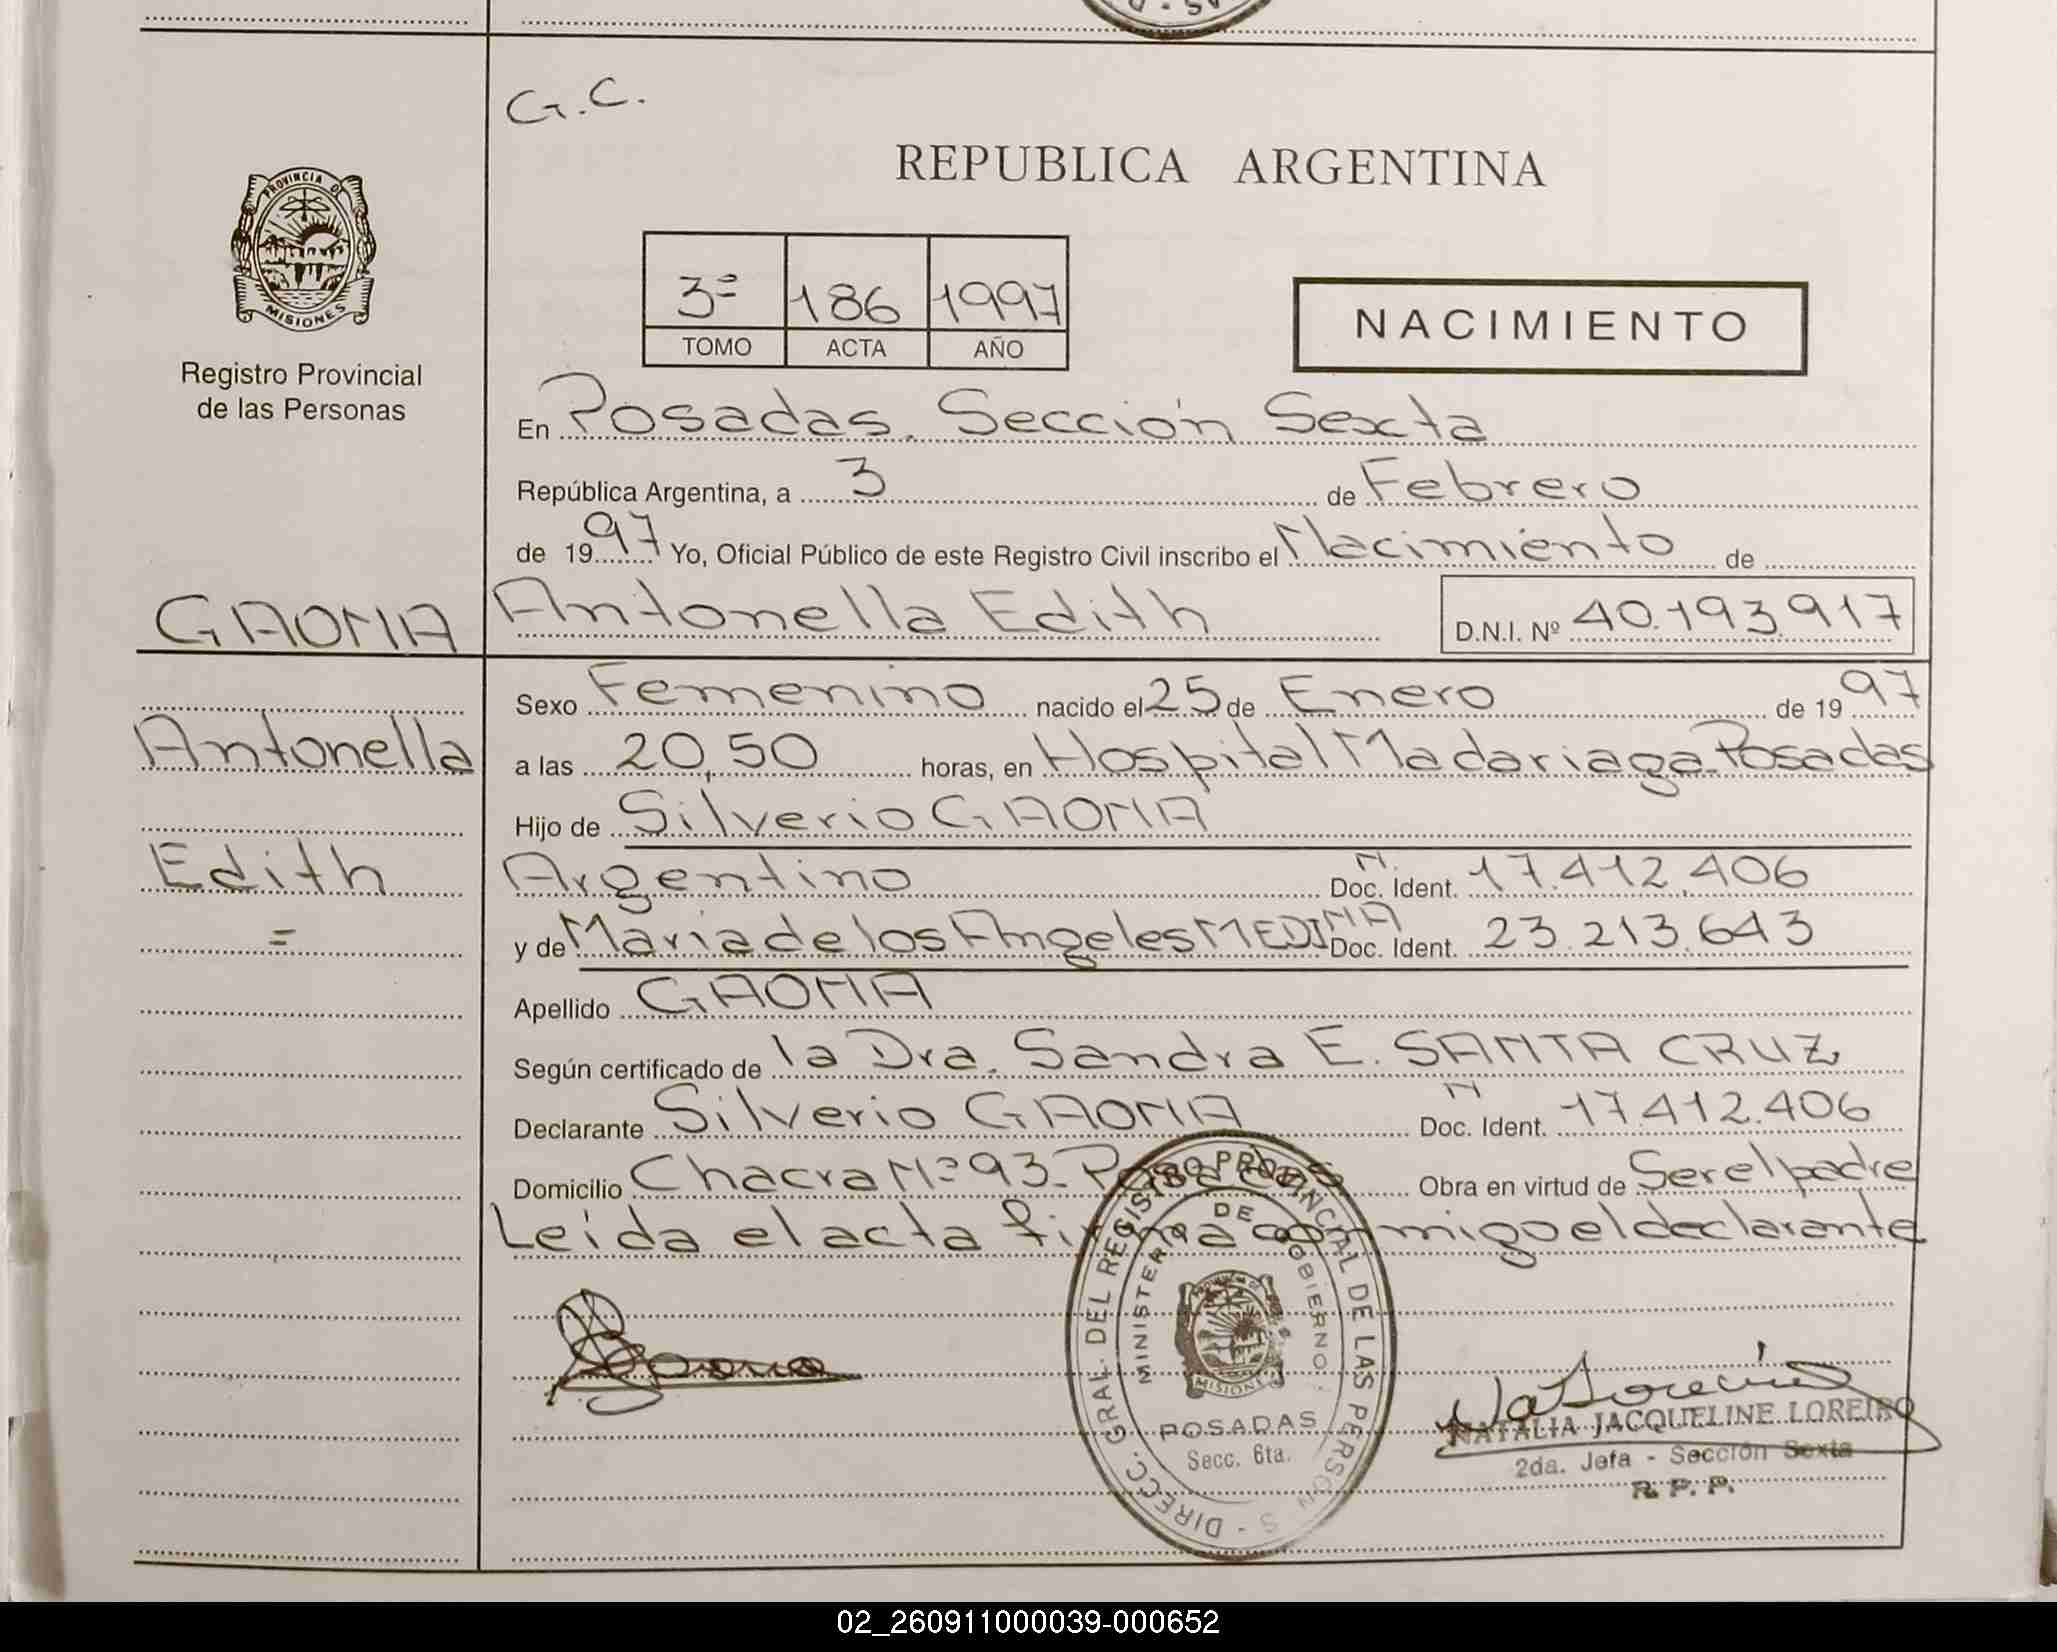 G.C.
REPUBLICA ARGENTINA
PROVINCIA DE
MISIONES
Registro Provincial
de las Personas
3º 186 1997
TOMO ACTA AÑO
NACIMIENTO
En Posadas. Sección Sexta
República Argentina, a 3 de Febrero
de 1997 Yo, Oficial Público de este Registro Civil inscribo el Nacimiento de
GAONA Antonella Edith D.N.I. Nº 40.193.917
Sexo Femenino nacido el 25 de Enero de 1997
Antonella a las 20,50 horas, en Hospital Madariaga-Posadas
Hijo de Silverio GAONA
Edith Argentino Doc. N. Ident. 17.412.406
= y de Maria de los Angeles MEDINA Doc. Ident. 23.213.643
Apellido GAONA
Según certificado de la Dra. Sandra E. SANTA CRUZ
Declarante Silverio GAONA Doc. N Ident. 17.412.406
Domicilio Chacra Nº 93-Posadas Obra en virtud de Ser el padre
Leída el acta firma conmigo el declarante
DIRECC. GRAL. DEL REGISTRO PROVINCIAL DE LAS PERSONAS -
MINISTERIO DE GOBIERNO
MISIONES
POSADAS
Secc. 6ta.
Gaona
NATALIA JACQUELINE LOREIRO
2da. Jefa - Sección Sexta
R. P. P.
02_260911000039-000652